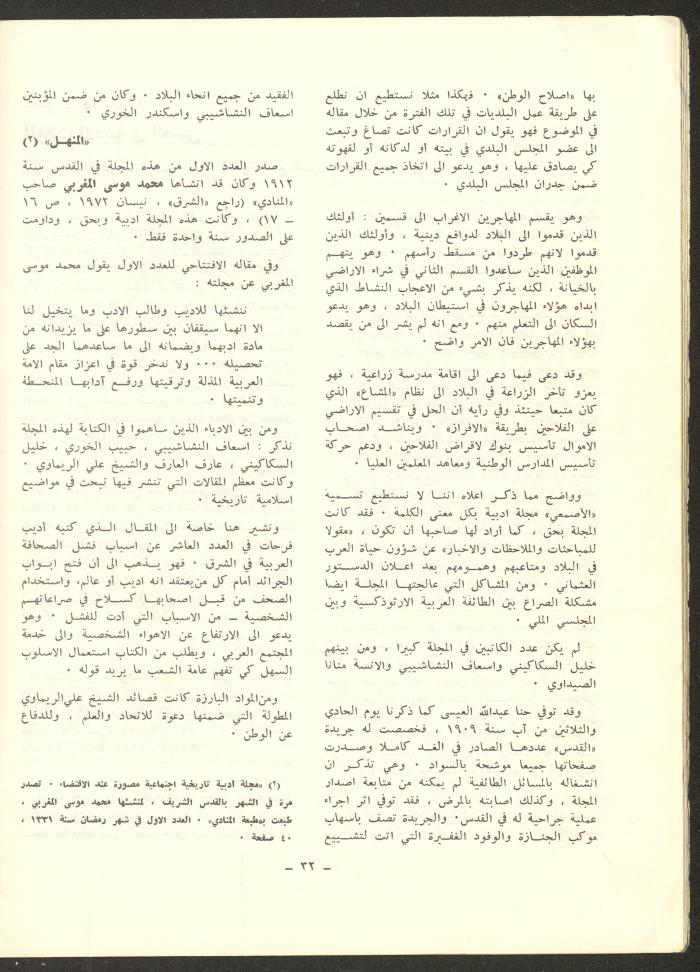 بها «اصلاح الوطن» ٠ فهكذا مثلا نستطيع ان نطلع
على طريقة عمل البلديات في تلك الفترة من خلال مقاله
في الموضوع فهو يقول ان القرارات كانت تصاغ وتبعث
الى عضو المجلس البلدي في بيته أو لدكانه أو لقهوته
كي يصادق عليها ، وهو يدعو الى اتخاذ جميع القرارات
ضمن جدران المجلس البلدي ٠
وهو يقسم المهاجرين الاغراب الى قسمين : أولئك
الذين قدموا الى البلاد لدوافع دينية ، وأولئك الذين
قدموا لانهم طردوا من مسقط رأسهم ٠ وهو يتهم
الموظفين الذين ساعدوا القسم الثاني في شراء الاراضي
بالخيانة ، لكنه يذكر بشيء من الاعجاب النشاط الذي
ابداه هؤلاء المهاجرون في استيطان البلاد ، وهو يدعو
السكان الى التعلم منهم ٠ ومع انه لم يشر الى من يقصد
بهؤلاء المهاجرين فان الامر واضح ٠
وقد دعى فيما دعى الى اقامة مدرسة زراعية ، فهو
يعزو تأخر الزراعة في البلاد الى نظام «المشاع» الذي
كان متبعا حينئذ وفي رأيه أن الحل في تقسيم الاراضي
على الفلاحين بطريقة «الافراز» ٠ ويناشد اصحاب
الاموال تأسيس بنوك لاقراض الفلاحين ، ودعم حركة
تأسيس المدارس الوطنية ومعاهد المعلمين العليا ٠
وواضح مما ذكر اعلاه اننا لا نستطيع تسمية
«الأصمعي» مجلة ادبية بكل معنى الكلمة ٠ فقد كانت
المجلة بحق ، كما أراد لها صاحبها أن تكون ، «مقولا
للمباحثات والملاحظات والاخبار» عن شؤون حياة العرب
في البلاد ومتاعبهم وهمومهم بعد اعلان الدستور
العثماني ٠ ومن المشاكل التي عالجتها المجلة ايضا
مشكلة الصراع بين الطائفة العربية الارثوذكسية وبين
المجلسي الملي ٠
لم يكن عدد الكاتبين في المجلة كبيرا ، ومن بينهم
خليل السكاكيني واسعاف النشاشيبي والانسة منانا
الصيداوي ٠
وقد توفي حنا عبدالله العيسى كما ذكرنا يوم الحادي
والثلاثين من آب سنة ١٩٠٩ ، فخصصت له جريدة
«القدس» عددها الصادر في الغد كاملا وصدرت
صفحاتها جميعا موشحة بالسواد ٠ وهي تذكر ان
انشغاله بالمسائل الطائفية لم يمكنه من متابعة اصدار
المجلة ، وكذلك اصابته بالمرض ، فقد توفي اثر اجراء
عملية جراحية له في القدس٠ والجريدة تصف باسهاب
موكب الجنازة والوفود الغفيرة التي اتت لتشييع
الفقيد من جميع انحاء البلاد ٠ وكان من ضمن المؤبنين
اسعاف النشاشيبي واسكندر الخوري ٠
«المنهل» (٢)
صدر العدد الاول من هذه المجلة في القدس سنة
١٩١٢ وكان قد انشأها محمد موسى المغربي صاحب
«المنادي» (راجع «الشرق» ، نيسان ١٩٧٢ ، ص ١٦
ــ ١٧) ، وكانت هذه المجلة ادبية وبحق ، وداومت
على الصدور سنة واحدة فقط ٠
وفي مقاله الافتتاحي للعدد الاول يقول محمد موسى
المغربي عن مجلته :
ننشئها للاديب وطالب الادب وما يتخيل لنا
الا انهما سيقفان بين سطورها على ما يزيدانه من
مادة ادبهما ويضمانه الى ما ساعدهما الجد على
تحصيله ٠٠٠ ولا ندخر قوة في اعزاز مقام الامة
العربية المذلة وترقيتها ورفع آدابها المنحطة
وتنميتها ٠
ومن بين الادباء الذين ساهموا في الكتابة لهذه المجلة
نذكر : اسعاف النشاشيبي ، حبيب الخوري ، خليل
السكاكيني ، عارف العارف والشيخ علي الريماوي ٠
وكانت معظم المقالات التي تنشر فيها تبحث في مواضيع
اسلامية تاريخية ٠
ونشير هنا خاصة الى المقال الذي كتبه أديب
فرحات في العدد العاشر عن اسباب فشل الصحافة
العربية في الشرق ٠ فهو يذهب الى أن فتح ابواب
الجرائد أمام كل من‌يعتقد انه اديب أو عالم، واستخدام
الصحف من قبل اصحابها كسلاح في صراعاتهم
الشخصية ــ من الاسباب التي أدت للفشل ٠ وهو
يدعو الى الارتفاع عن الاهواء الشخصية والى خدمة
المجتمع العربي ، ويطلب من الكتاب استعمال الاسلوب
السهل كي تفهم عامة الشعب ما يريد قوله ٠
ومن‌المواد البارزة كانت قصائد الشيخ علي‌الريماوي
المطولة التي ضمنها دعوة للاتحاد والعلم ، وللدفاع
عن الوطن ٠
(٢) «مجلة ادبية تاريخية اجتماعية مصورة عند الاقتضاء ٠ تصدر
مرة في الشهر بالقدس الشريف ، لمنشئها محمد موسى المغربي ،
طبعت بمطبعة المنادي» ٠ العدد الاول في شهر رمضان سنة ١٣٣١ ،
٤٠ صفحة ٠
ــ ٣٢ ــ